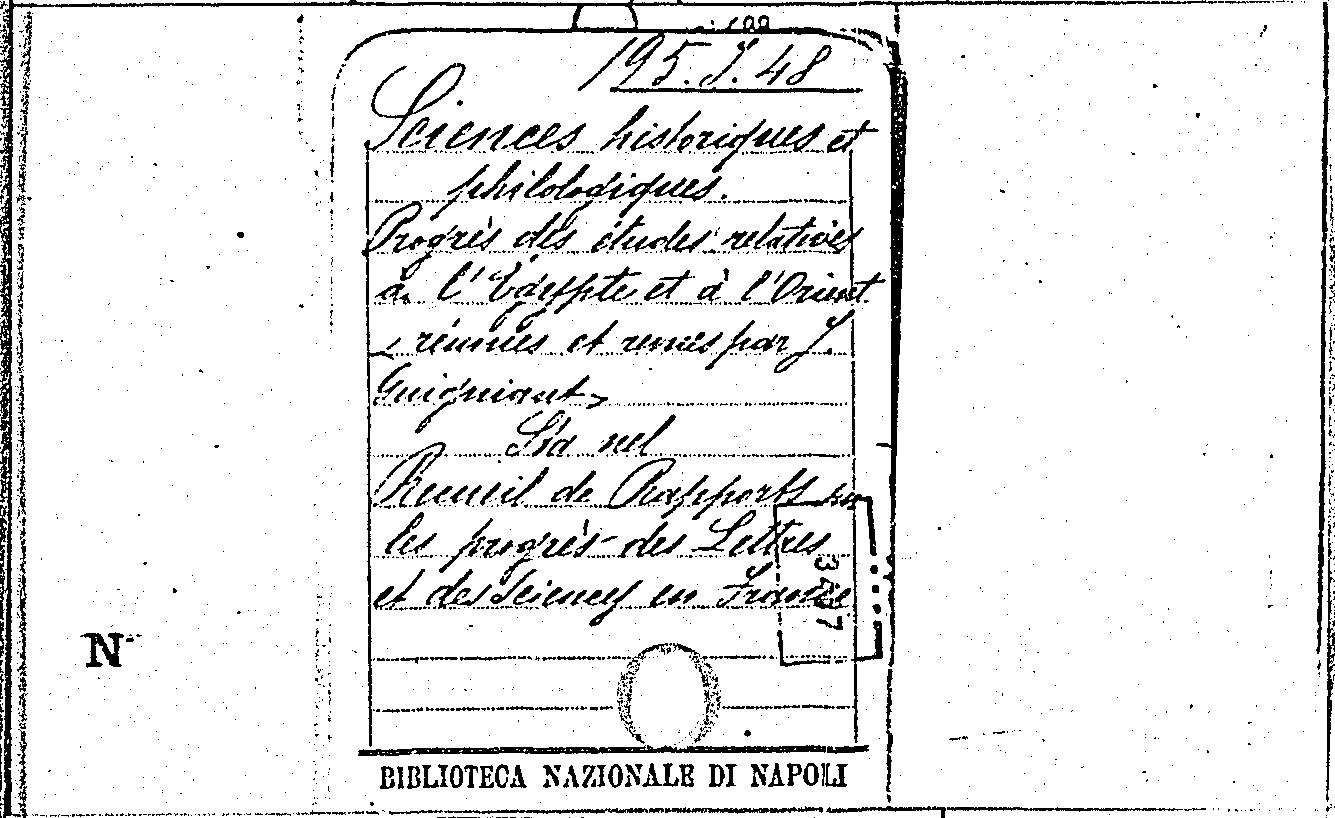 195. J. 48
Sciences historiques et
philologiques.
Progrès des études relatives
à l'Egypte et à l'Orient
< réunies et revues par J.
Guigniaut >
Sta nel
Recueil de Rapports sur
les progrès des Lettres
et des Sciences en France
N
BIBLIOTECA NAZIONALE DI NAPOLI